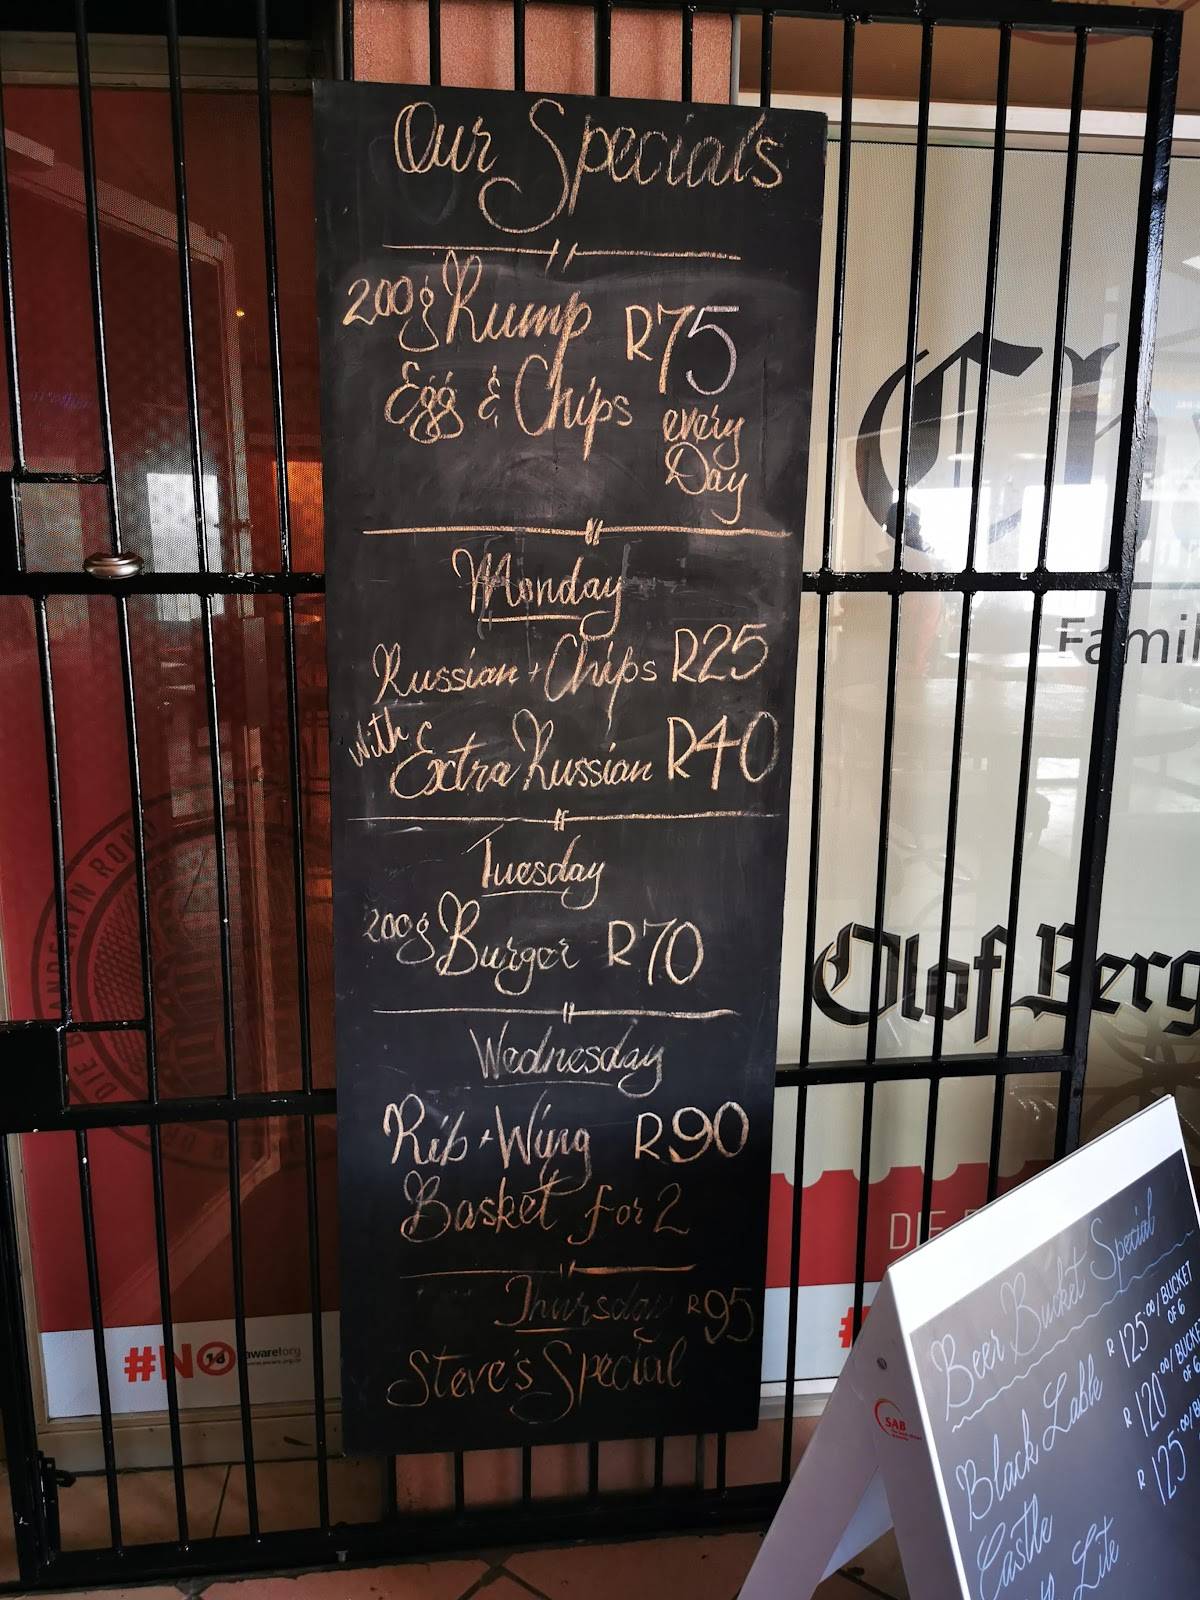 Our Specials
200g Rump R75
Egg & Chips every
Day
Monday
Russian + Chips R25
with Extra Russian R40
Tuesday
200g Burger R70
Wednesday
Rib + Wing R90
Basket for 2
Thursday R95
Steve's Special
Olof Berg
Famil
DIE
#NO 18 aware.org
SAB
Beer Bucket Special
Black Lable R 125.00/BUCKET OF 6
Castle R 120.00/BUCKET OF 6
Lite R 125.00/